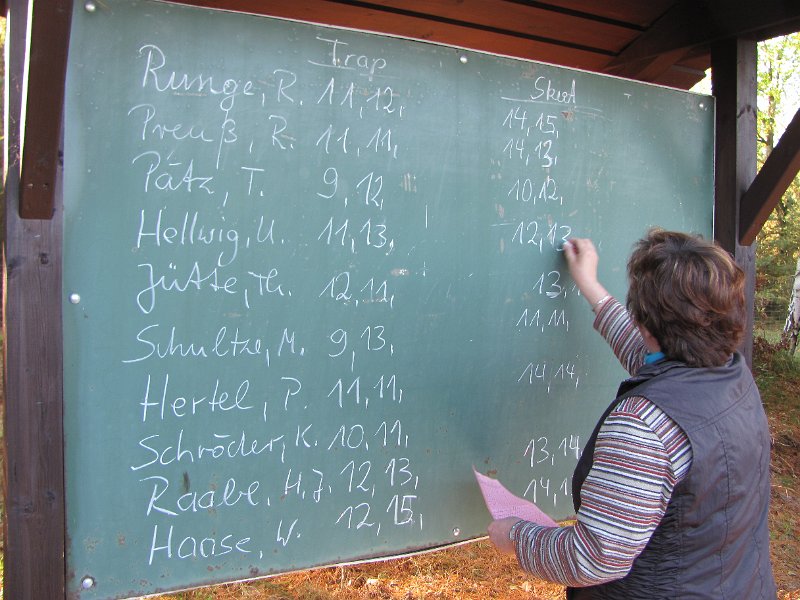 Trap Skeet
Runge, R. 11, 12, 14, 15,
Preuß, R. 11, 11, 14, 13,
Pätz, T. 9, 12, 10, 12,
Hellwig, U. 11, 13, 12, 13
Jütte, Th. 12, 11, 13,
Schultze, M. 9, 13, 11, 11,
Hertel, P. 11, 11, 14, 14,
Schröder, K. 10, 11,
Raabe, H.J. 12, 13, 13, 14
Hanse, W. 12, 15, 14,